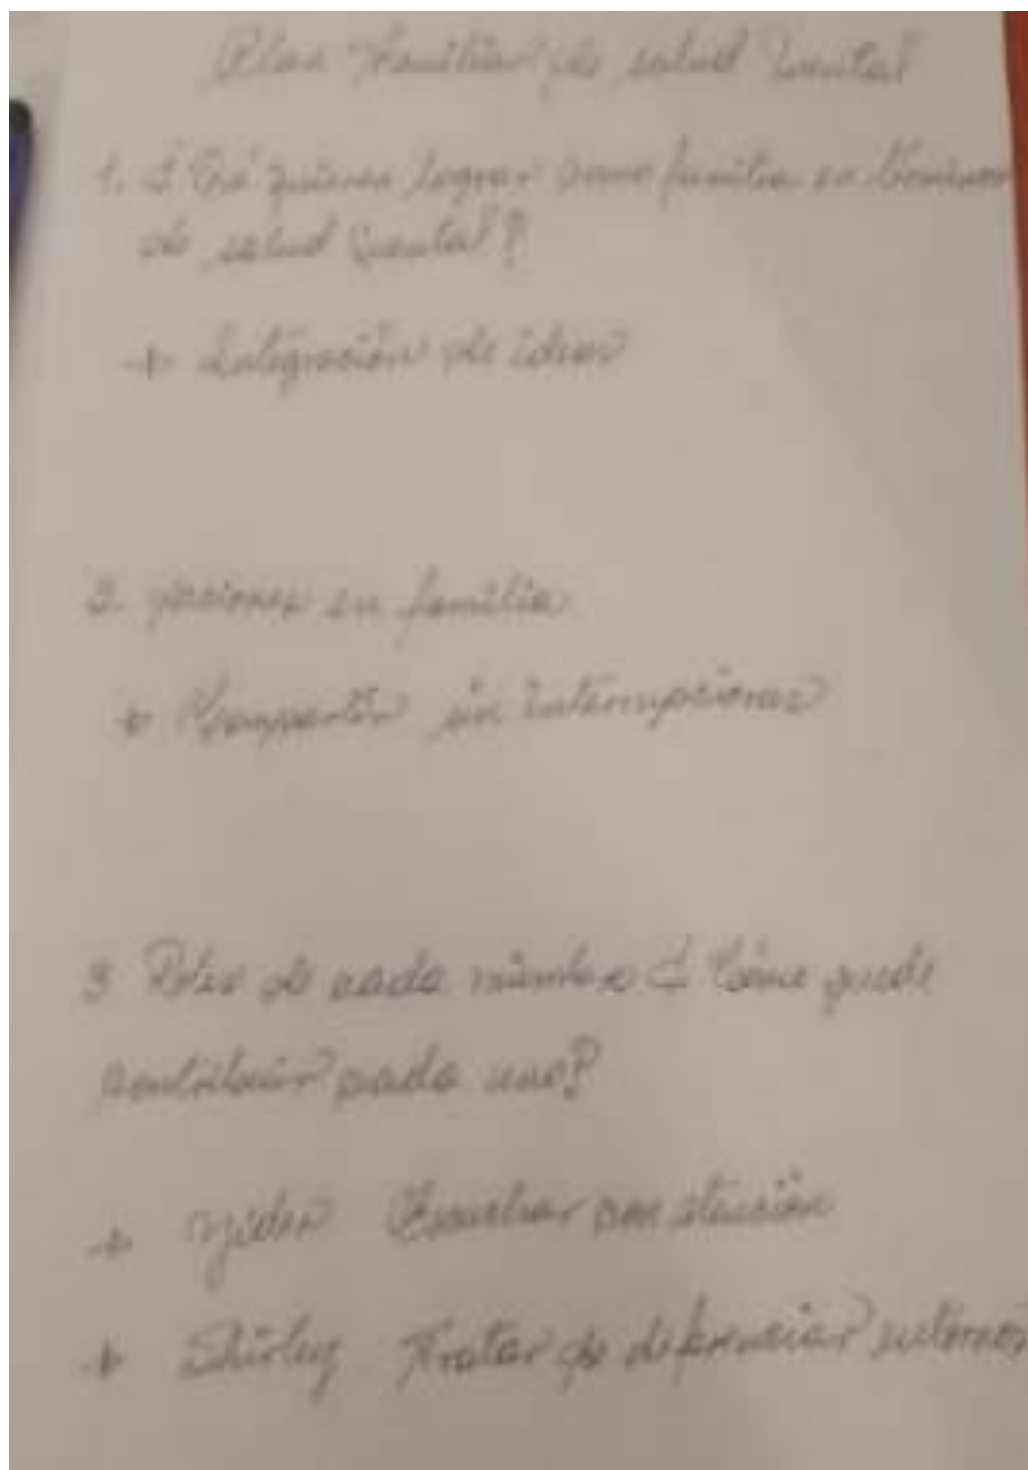 Plan Familiar de salud mental
1. ¿ Qué quieren lograr como familia en términos
de salud mental?
→ Integración de ideas
2. en familia
→ Compartir sin interrupciones
3 Roles de cada miembro ¿ Cómo puede
contribuir cada uno?
→ Escuchar con atención
→ Shirley Tratar de diferenciar